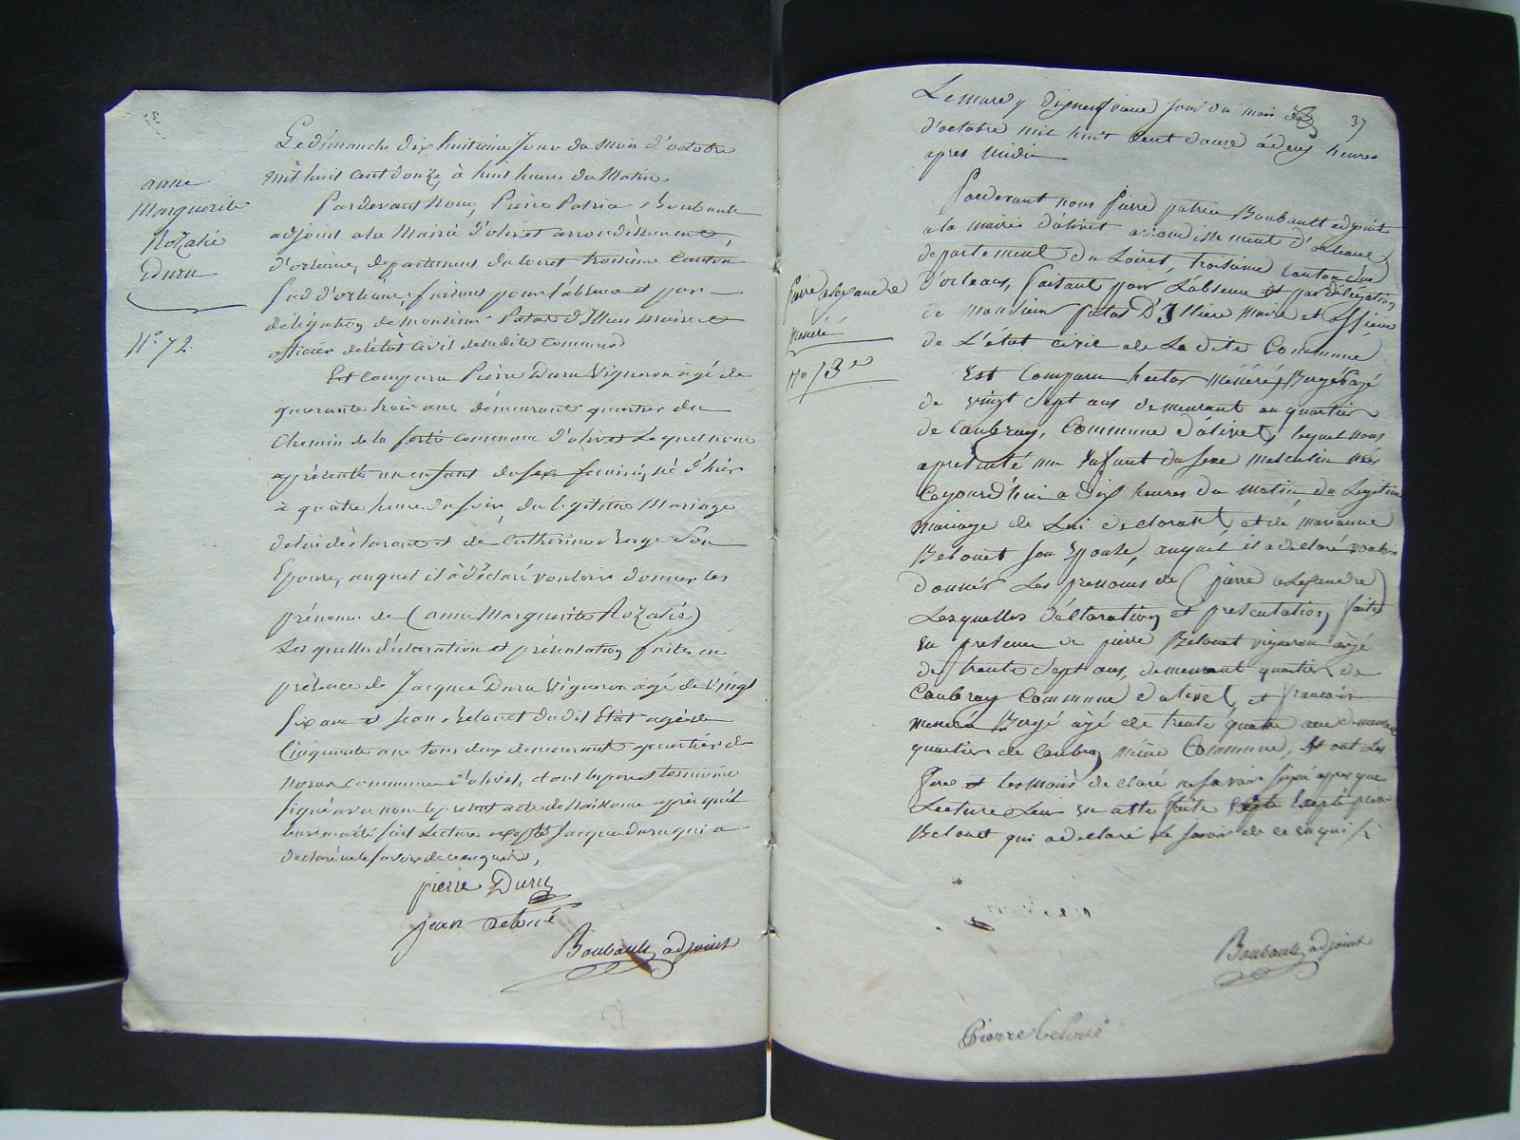 anne
Marguerite
Rozalie
Duru
N.° 72.
Le dimanche dix huitieme Jour du Mois d'octobre
mil huit cent douze, à huit heures du Matin
Pardevant Nous, Pierre Patrice Boubault
adjoint a la Mairie d'olivet arrondissement
d'orleans, departement du loiret troisieme Canton
Sud d'orleans, faisant pour l'absence et par
délégation de Monsieur Patas d'Illiers Maire et
officier de l'état Civil de la dite Commune
Est Comparu Pierre Duru Vigneron âgé de
quarante trois ans demeurant quartier du
Chemin de la ferté commune d'olivet Lequel nous
a présenté un enfant du sexe feminin, né d'hier
à quatre heures du soir du légitime Mariage
de lui déclarant et de Catherine Berge Son
Epouse, auquel il à déclaré vouloir donner les
prénoms de (anne Marguerite Rozalie)
Les quelles déclaration et présentation faites en
présence de Jacques Duru Vigneron âgé de Vingt
Six ans et Jean Belouet du dit Etat âgé de
Cinquante ans tous deux demeurant quartier de
commune d'olivet, et ont les pere et temoins
Signé avec nous le présent acte de Naissance après qu'il
leur en a été fait Lecture excepté Jacques Duru qui a
declaré ne le savoir de ce enquis,
pierre Duru
jean Beloué
Boubault adjoint
37
Pierre alexandre
meneré
N.° 73.e
Le mardy dixneufvieme jour du mois
d'octobre mil huit Cent douze à deux heures
apres Midi
Pardevant nous pierre patrice Boubault adjoint
a la mairie d'olivet arrondissement d'Orleans
departement du Loiret, troisieme Canton Sud
d'orleans, faisant pour L'absence et par délégation
de monsieur patas D'Illiers Maire et officier
de L'état Civil de La dite Commune
Est Comparu hector Meneré, Bergé âgé
de vingt Sept ans demeurant au quartier
de Caubray, Commune d'olivet, lequel nous
a presenté un Enfant du sexe masculin né
Cejourd'hui a dix heures du Matin du Legitime
Mariage de Lui déclarant, et de marianne
Belouet Son Epouse, auquel il a declaré vouloir
donner Les prenoms de (pierre alexandre)
Lesquelles déclaration et presentation, faites
en presence de pierre Belouet vigneron âgé
de trente Sept ans, demeurant quartier de
Caubray Commune d'olivet, et francois
Meneré Bergé âgé de trente quatre ans demeurant
quartier de Caubray même Commune, Et ont Les
Pere et temoins declaré ne savoir signé apres que
Lecture Leur en a été faite Excepté pierre
Belouet qui a declaré le savoir de ce enquis
Boubault adjoint
Pierre beloué